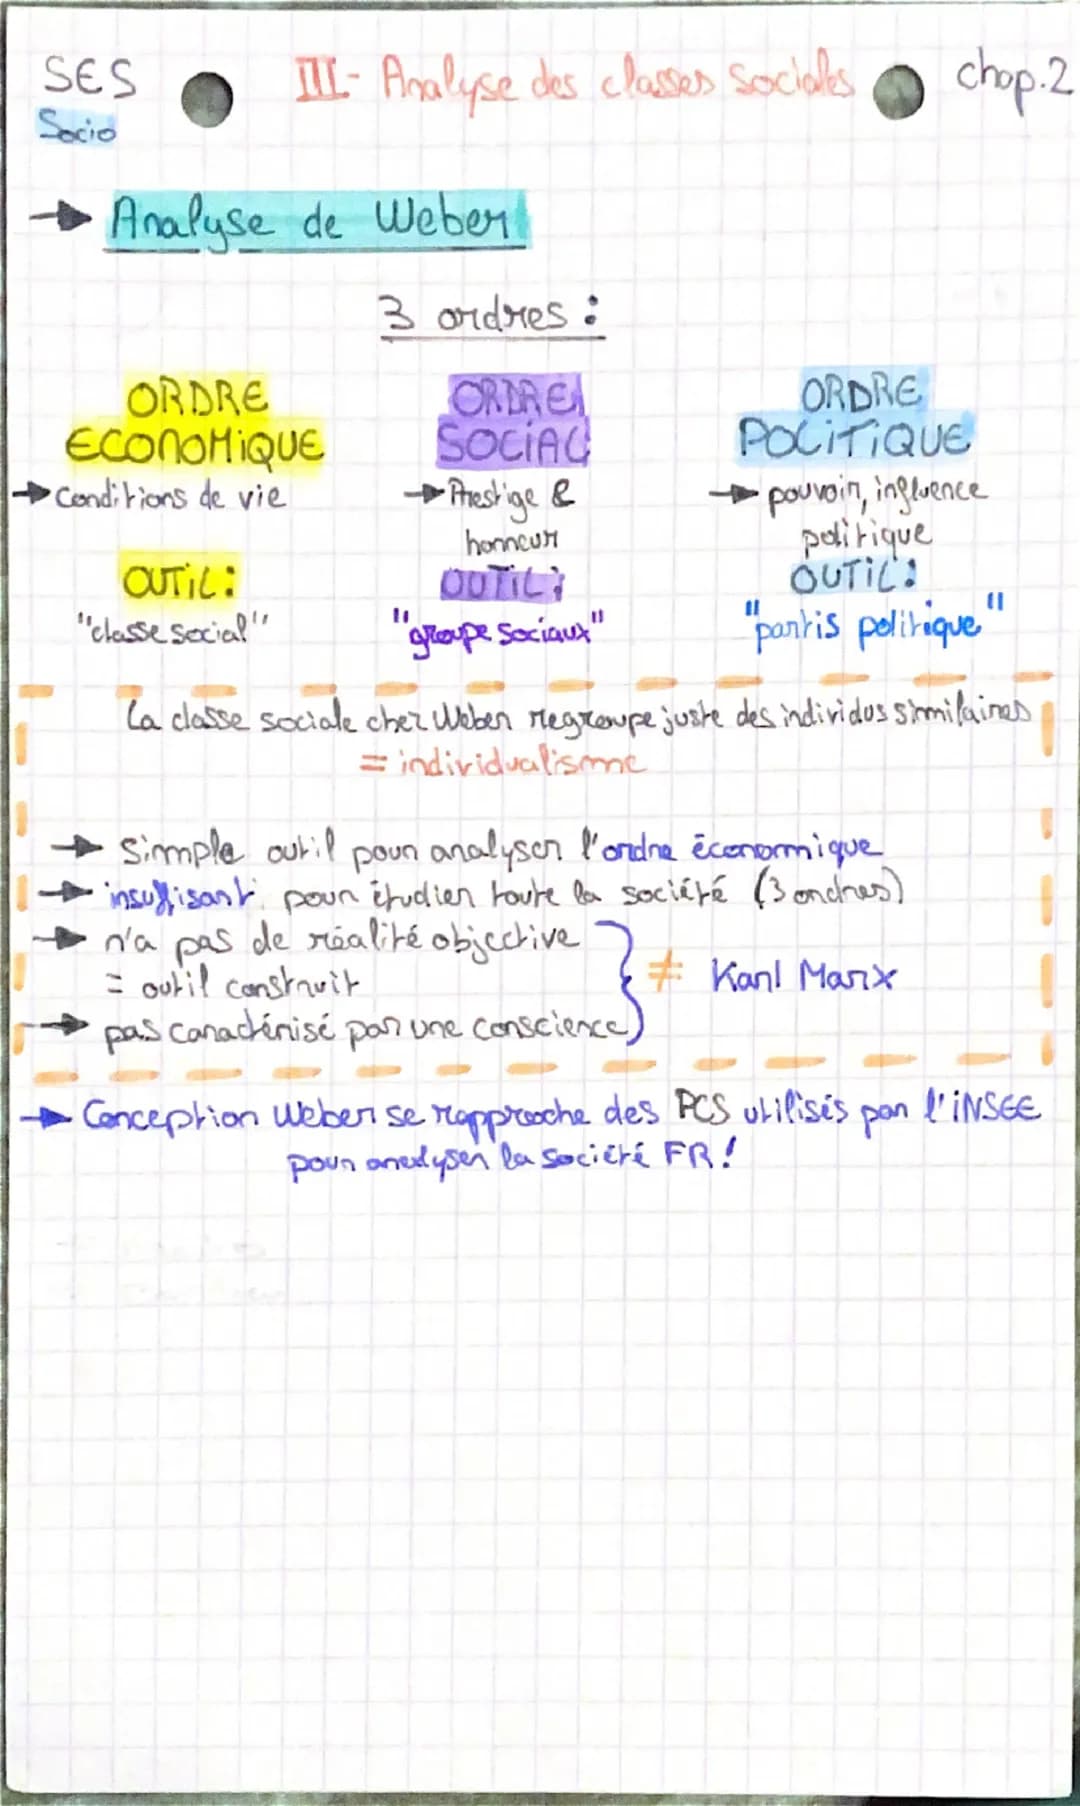 SES
III- Analyse des classes sociales
chap.2
Socio
→ Analyse de Weber
3 ordres :
ORDRE
ECONOMIQUE
→ Conditions de vie
OUTIL :
"classe social"
ORDRE
SOCIAL
→ Prestige &
honneur
OUTIL :
"groupe sociaux"
ORDRE
POLITIQUE
→ pouvoir, influence
politique
OUTIL :
"partis politique"
La classe sociale chez Weber regroupe juste des individus similaires
= individualisme
→ simple outil pour analyser l'ordre économique
→ insuffisant pour étudier toute la société (3 ordres)
→ n'a pas de réalité objective
= outil construit
→ pas caractérisé par une conscience
≠ Karl Marx
→ Conception Weber se rapproche des PCS utilisés par l'INSEE
pour analyser la société FR !